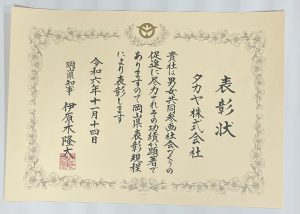 表彰状
タカヤ株式会社
貴社は男女共同参画社会づくりの
促進に尽力されその功績が顕著で
ありますので岡山県表彰規程
により表彰します
令和六年十一月十四日
岡山県知事 伊原木隆太